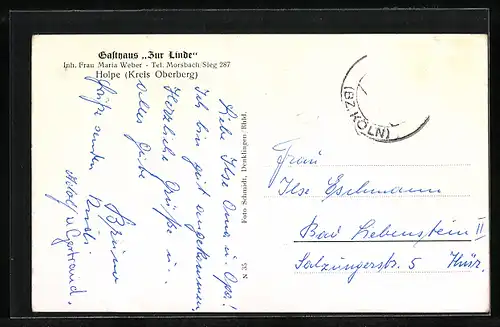 Gasthaus „Zur Linde“
Inh. Frau Maria Weber - Tel. Morsbach/Sieg 287
Holpe (Kreis Oberberg)
Liebe Ilse Oma u. Opa!
Ich bin gut angekommen.
Herzliche Grüße u.
alles Gute
Grüße senden
Adolf u. Gertraud.
Foto Schmidt, Denklingen/Rhld.
N 35
(BZ KÖLN)
Frau
Ilse Eschmann
Bad Liebenstein II
Salzungerstr. 5